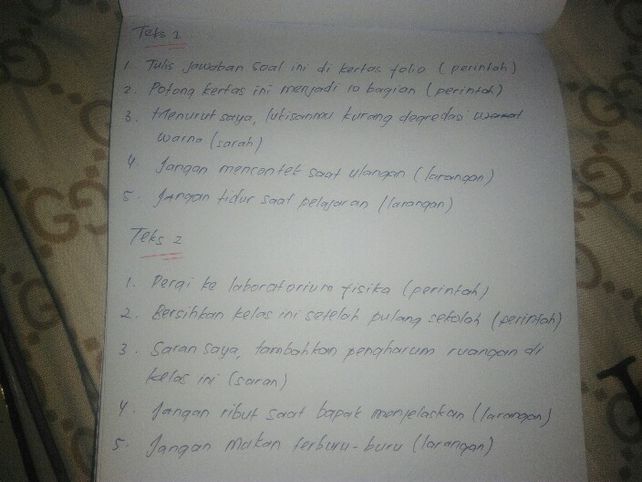 Teks 1
1. Tulis jawaban soal ini di kertas folio (perintah)
2. Potong kertas ini menjadi 10 bagian (perintah)
3. Menurut saya, lukisanmu kurang degredasi
warna (sarah)
4. Jangan mencontek saat ulangan (larangan)
5. Jangan tidur saat pelajaran (larangan)
Teks 2
1. Pergi ke laboratorium fisika (perintah)
2. Bersihkan kelas ini setelah pulang sekolah (perintah)
3. Saran saya, tambahkan pengharum ruangan di
kelas ini (saran)
4. Jangan ribut saat bapak menjelaskan (larangan)
5. Jangan makan terburu-buru (larangan)